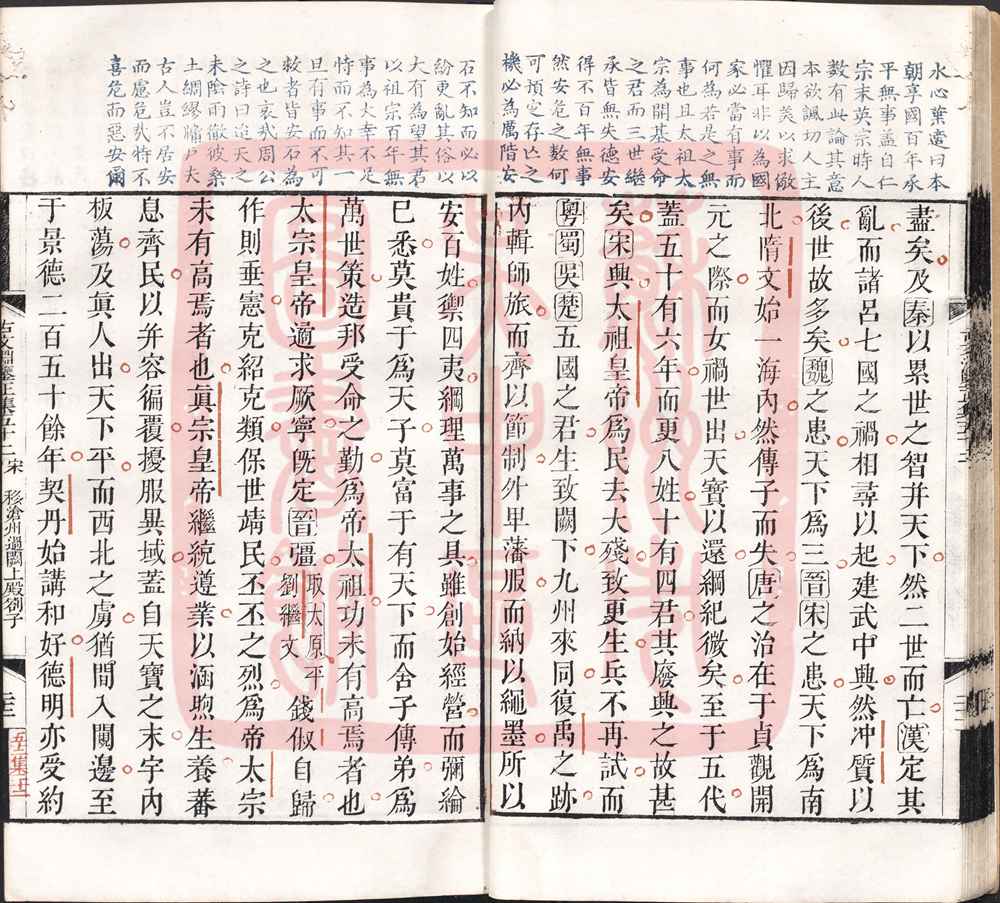 水心葉適曰本
朝享國百年承
平無事蓋自仁
宗末英宗時人
數有此論其意
本欲諷切人主
因歸美以求儆
懼耳非以為國
家必當有事而
何為若是之無
事也且太祖太
宗為開基受命
之君而三世繼
承皆無失德安
得不百年無事
然安危之數何
可預定存亡之
機必為厲階安
盡矣及秦以累世之智并天下然二世而亡漢定其
亂而諸呂七國之禍相尋以起建武中興然冲質以
後世故多矣魏之患天下爲三晉宋之患天下爲南
北隋文始一海內然傳子而失唐之治在于貞觀開
元之際而女禍世出天寶以還綱紀微矣至于五代
蓋五十有六年而更八姓十有四君其廢興之故甚
矣宋興太祖皇帝爲民去大殘致更生兵不再試而
粵蜀吳楚五國之君生致闕下九州來同復禹之跡
內輯師旅而齊以節制外卑藩服而納以繩墨所以
石不知而必以
紛更亂其俗以
大有為望其君
以祖宗百年無
事為大幸不足
恃而不知其一
旦有事而不可
救者皆安石為
之也哀哉周公
之詩曰迨天之
未陰雨徹彼桑
土綢繆牖戶夫
古人豈不居安
而慮危哉特不
喜危而惡安爾
安百姓禦四夷綱理萬事之具雖創始經營而彌綸
已悉莫貴于爲天子莫富于有天下而舍子傳弟爲
萬世策造邦受命之勤爲帝太祖功未有高焉者也
太宗皇帝遹求厥寧既定晉疆取太原平劉繼文錢俶自歸
作則垂憲克紹克類保世靖民丕丕之烈爲帝太宗
未有高焉者也眞宗皇帝繼統遵業以涵煦生養蕃
息齊民以并容徧覆擾服異域蓋自天寶之末宇內
板蕩及眞人出天下平而西北之虜猶間入闚邊至
于景德二百五十餘年契丹始講和好德明亦受約
宋
移滄州過闕上殿劄子